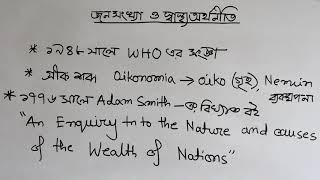 জনসংখ্যা ও স্বাস্থ্য অর্থনীতি
* ১৯৪৮ সালে WHO এর সংজ্ঞা
* গ্রীক শব্দ Oikonomia → oiko (গৃহ), Nemein
ব্যবস্থাপনা
* ১৭৭৬ সালে Adam Smith - এর বিখ্যাত বই
"An Enquiry into the Nature and causes
of the Wealth of Nations"